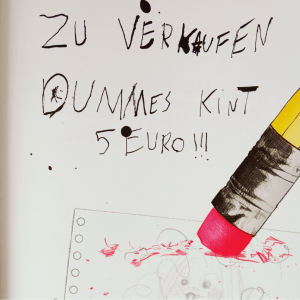 ZU VERKAUFEN
DUMMES KINT
5 EURO!!!